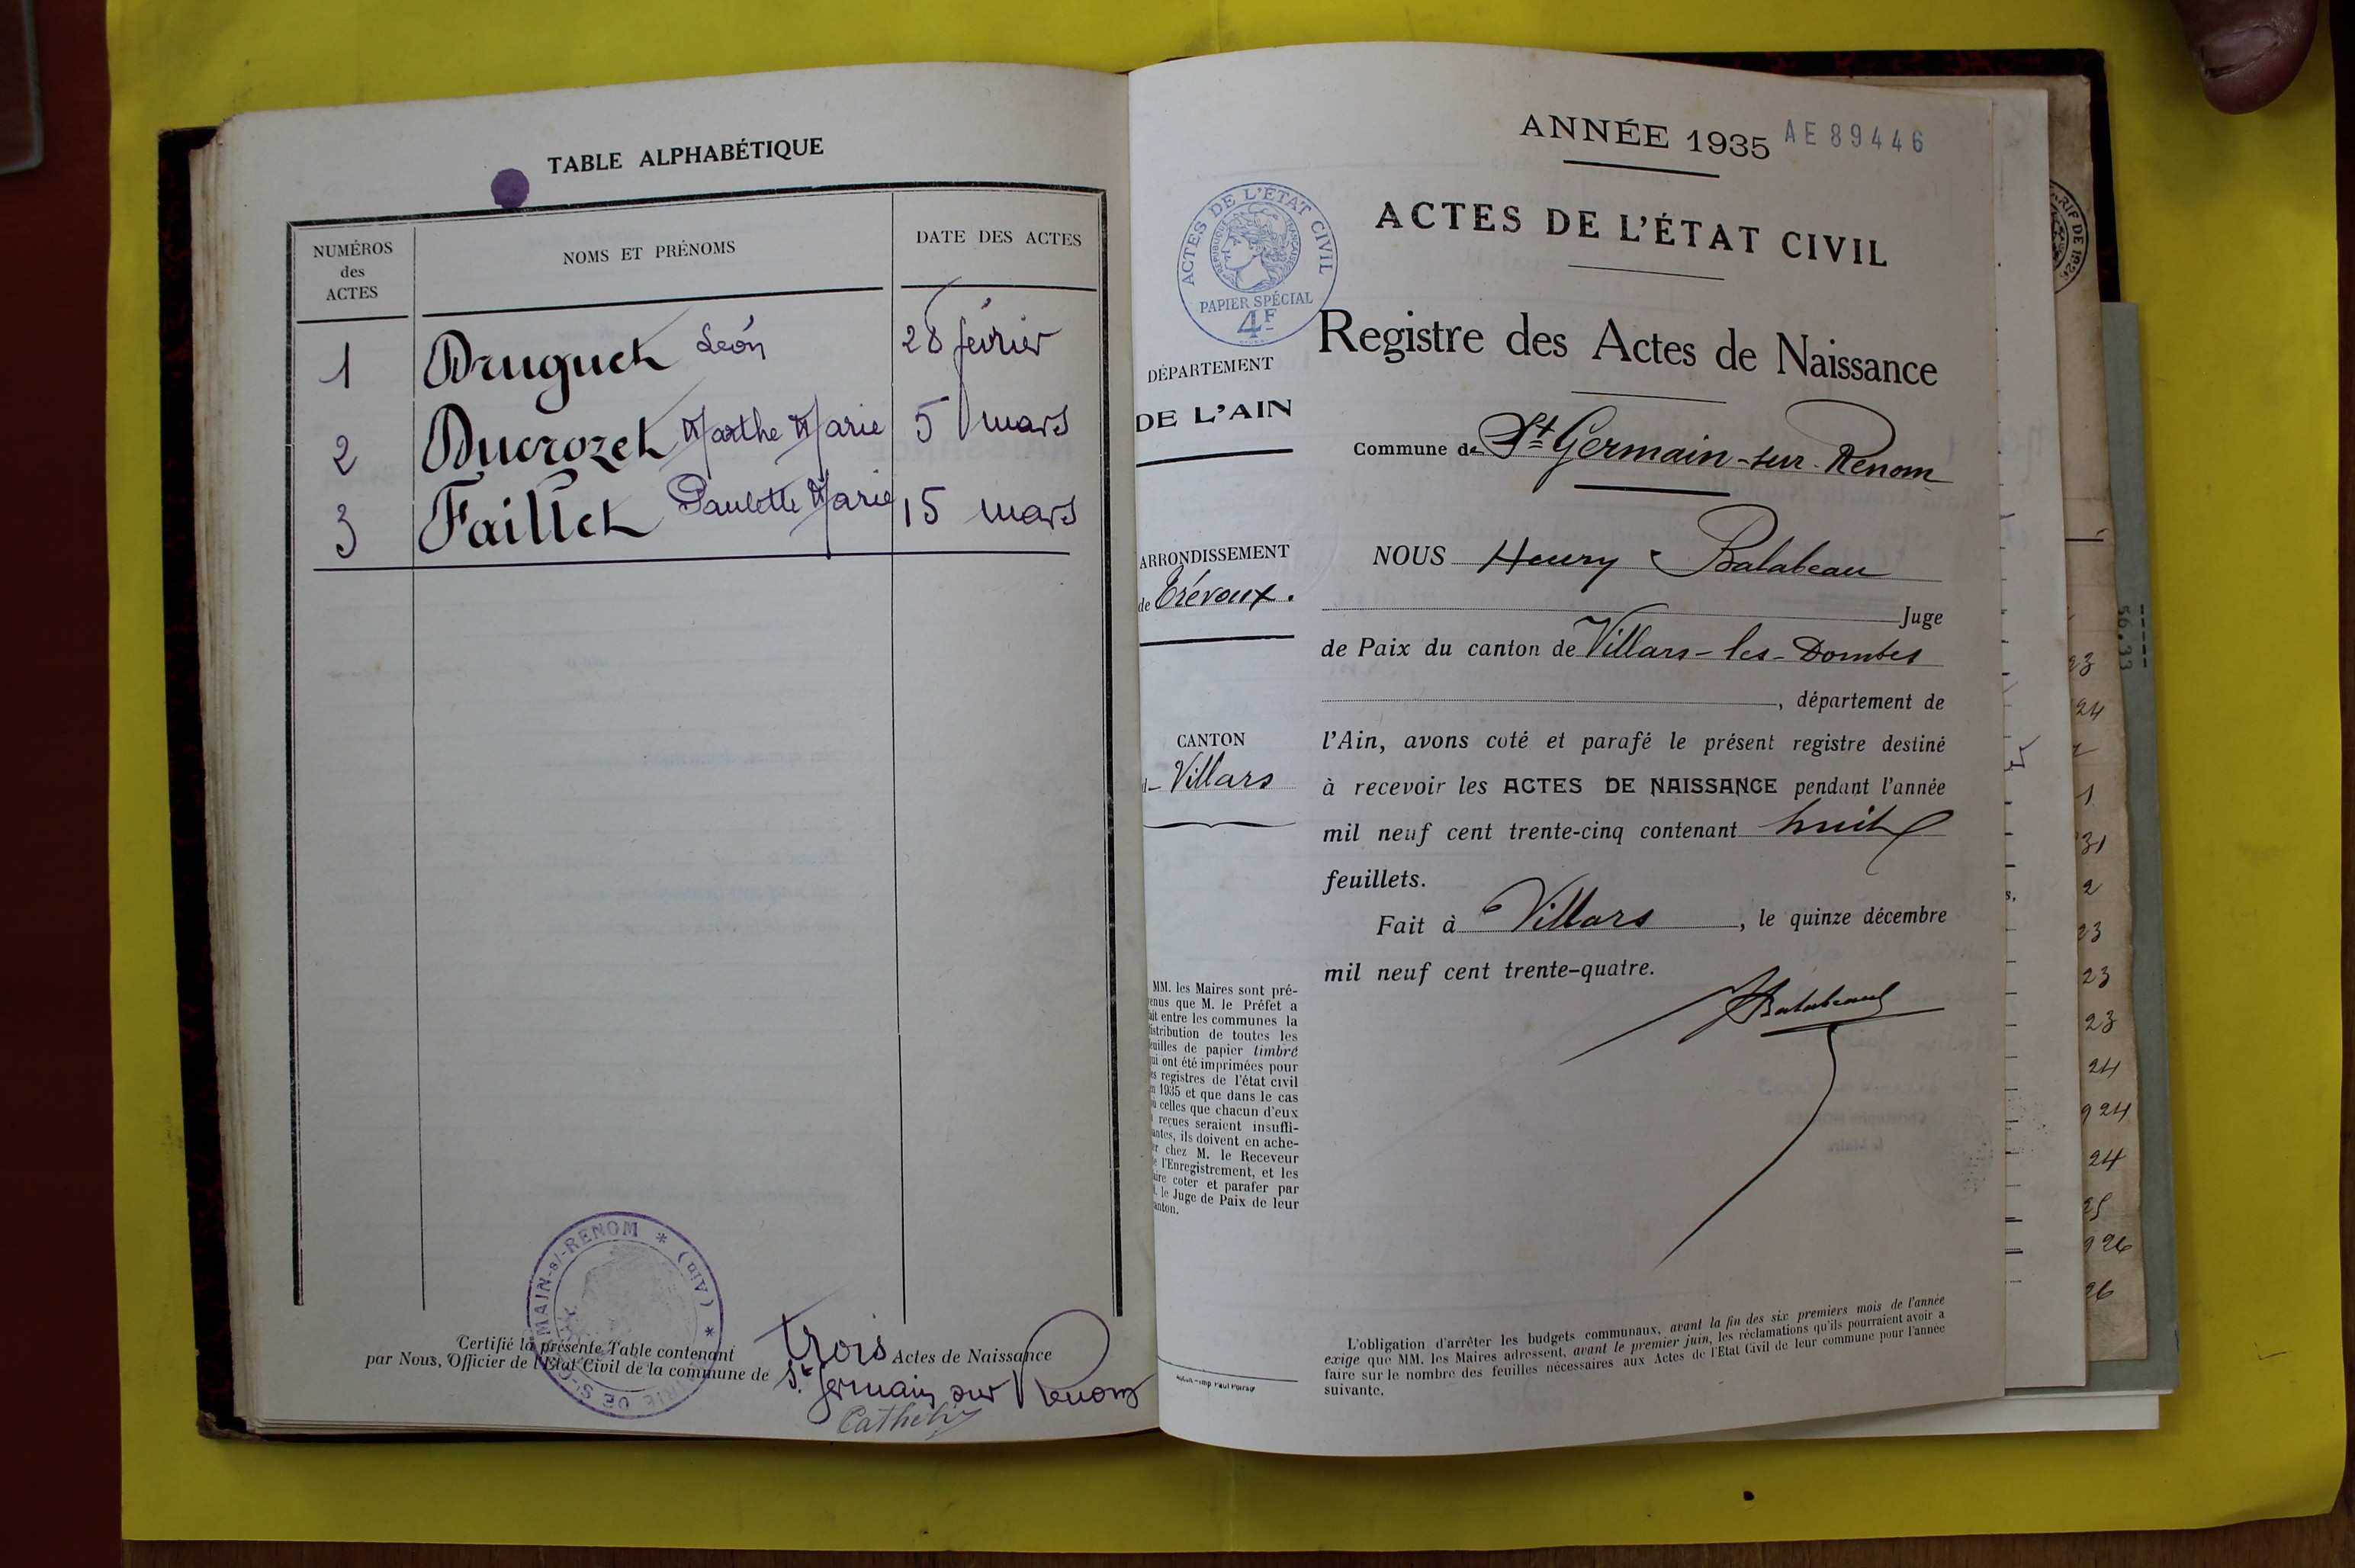 TABLE ALPHABÉTIQUE
NUMÉROS
des
ACTES
NOMS ET PRÉNOMS
DATE DES ACTES
1 Druguet Léon 28 février
2 Ducrozet Marthe Marie 5 mars
3 Faillet Paulette Marie 15 mars
Certifié la présente Table contenant trois Actes de Naissance
par Nous, Officier de l'Etat Civil de la commune de St Germain sur Renom
MAIRIE DE St-GERMAIN-s/-RENOM * (Ain) *
ANNÉE 1935 AE 89446
ACTES DE L'ÉTAT CIVIL
ACTES DE L'ÉTAT CIVIL
RÉPUBLIQUE FRANÇAISE
PAPIER SPÉCIAL
4F
Registre des Actes de Naissance
Commune de St Germain-sur-Renom
DÉPARTEMENT
DE L'AIN
ARRONDISSEMENT
de Trévoux.
CANTON
Villars
NOUS Henry Balabeau
Juge
de Paix du canton de Villars-les-Dombes
, département de
l'Ain, avons coté et parafé le présent registre destiné
à recevoir les ACTES DE NAISSANCE pendant l'année
mil neuf cent trente-cinq contenant huit
feuillets.
Fait à Villars, le quinze décembre
mil neuf cent trente-quatre.
MM. les Maires sont pré-
enus que M. le Préfet a
ait entre les communes la
istribution de toutes les
euilles de papier timbré
ui ont été imprimées pour
es registres de l'état civil
n 1935 et que dans le cas
ù celles que chacun d'eux
reçues seraient insuffi-
antes, ils doivent en ache-
er chez M. le Receveur
e l'Enregistrement, et les
aire coter et parafer par
. le Juge de Paix de leur
anton.
L'obligation d'arrêter les budgets communaux, avant la fin des six premiers mois de l'année
exige que MM. les Maires adressent, avant le premier juin, les réclamations qu'ils pourraient avoir à
faire sur le nombre des feuilles nécessaires aux Actes de l'Etat Civil de leur commune pour l'année
suivante.
23
24
1
31
2
23
23
23
24
924
24
25
926
26